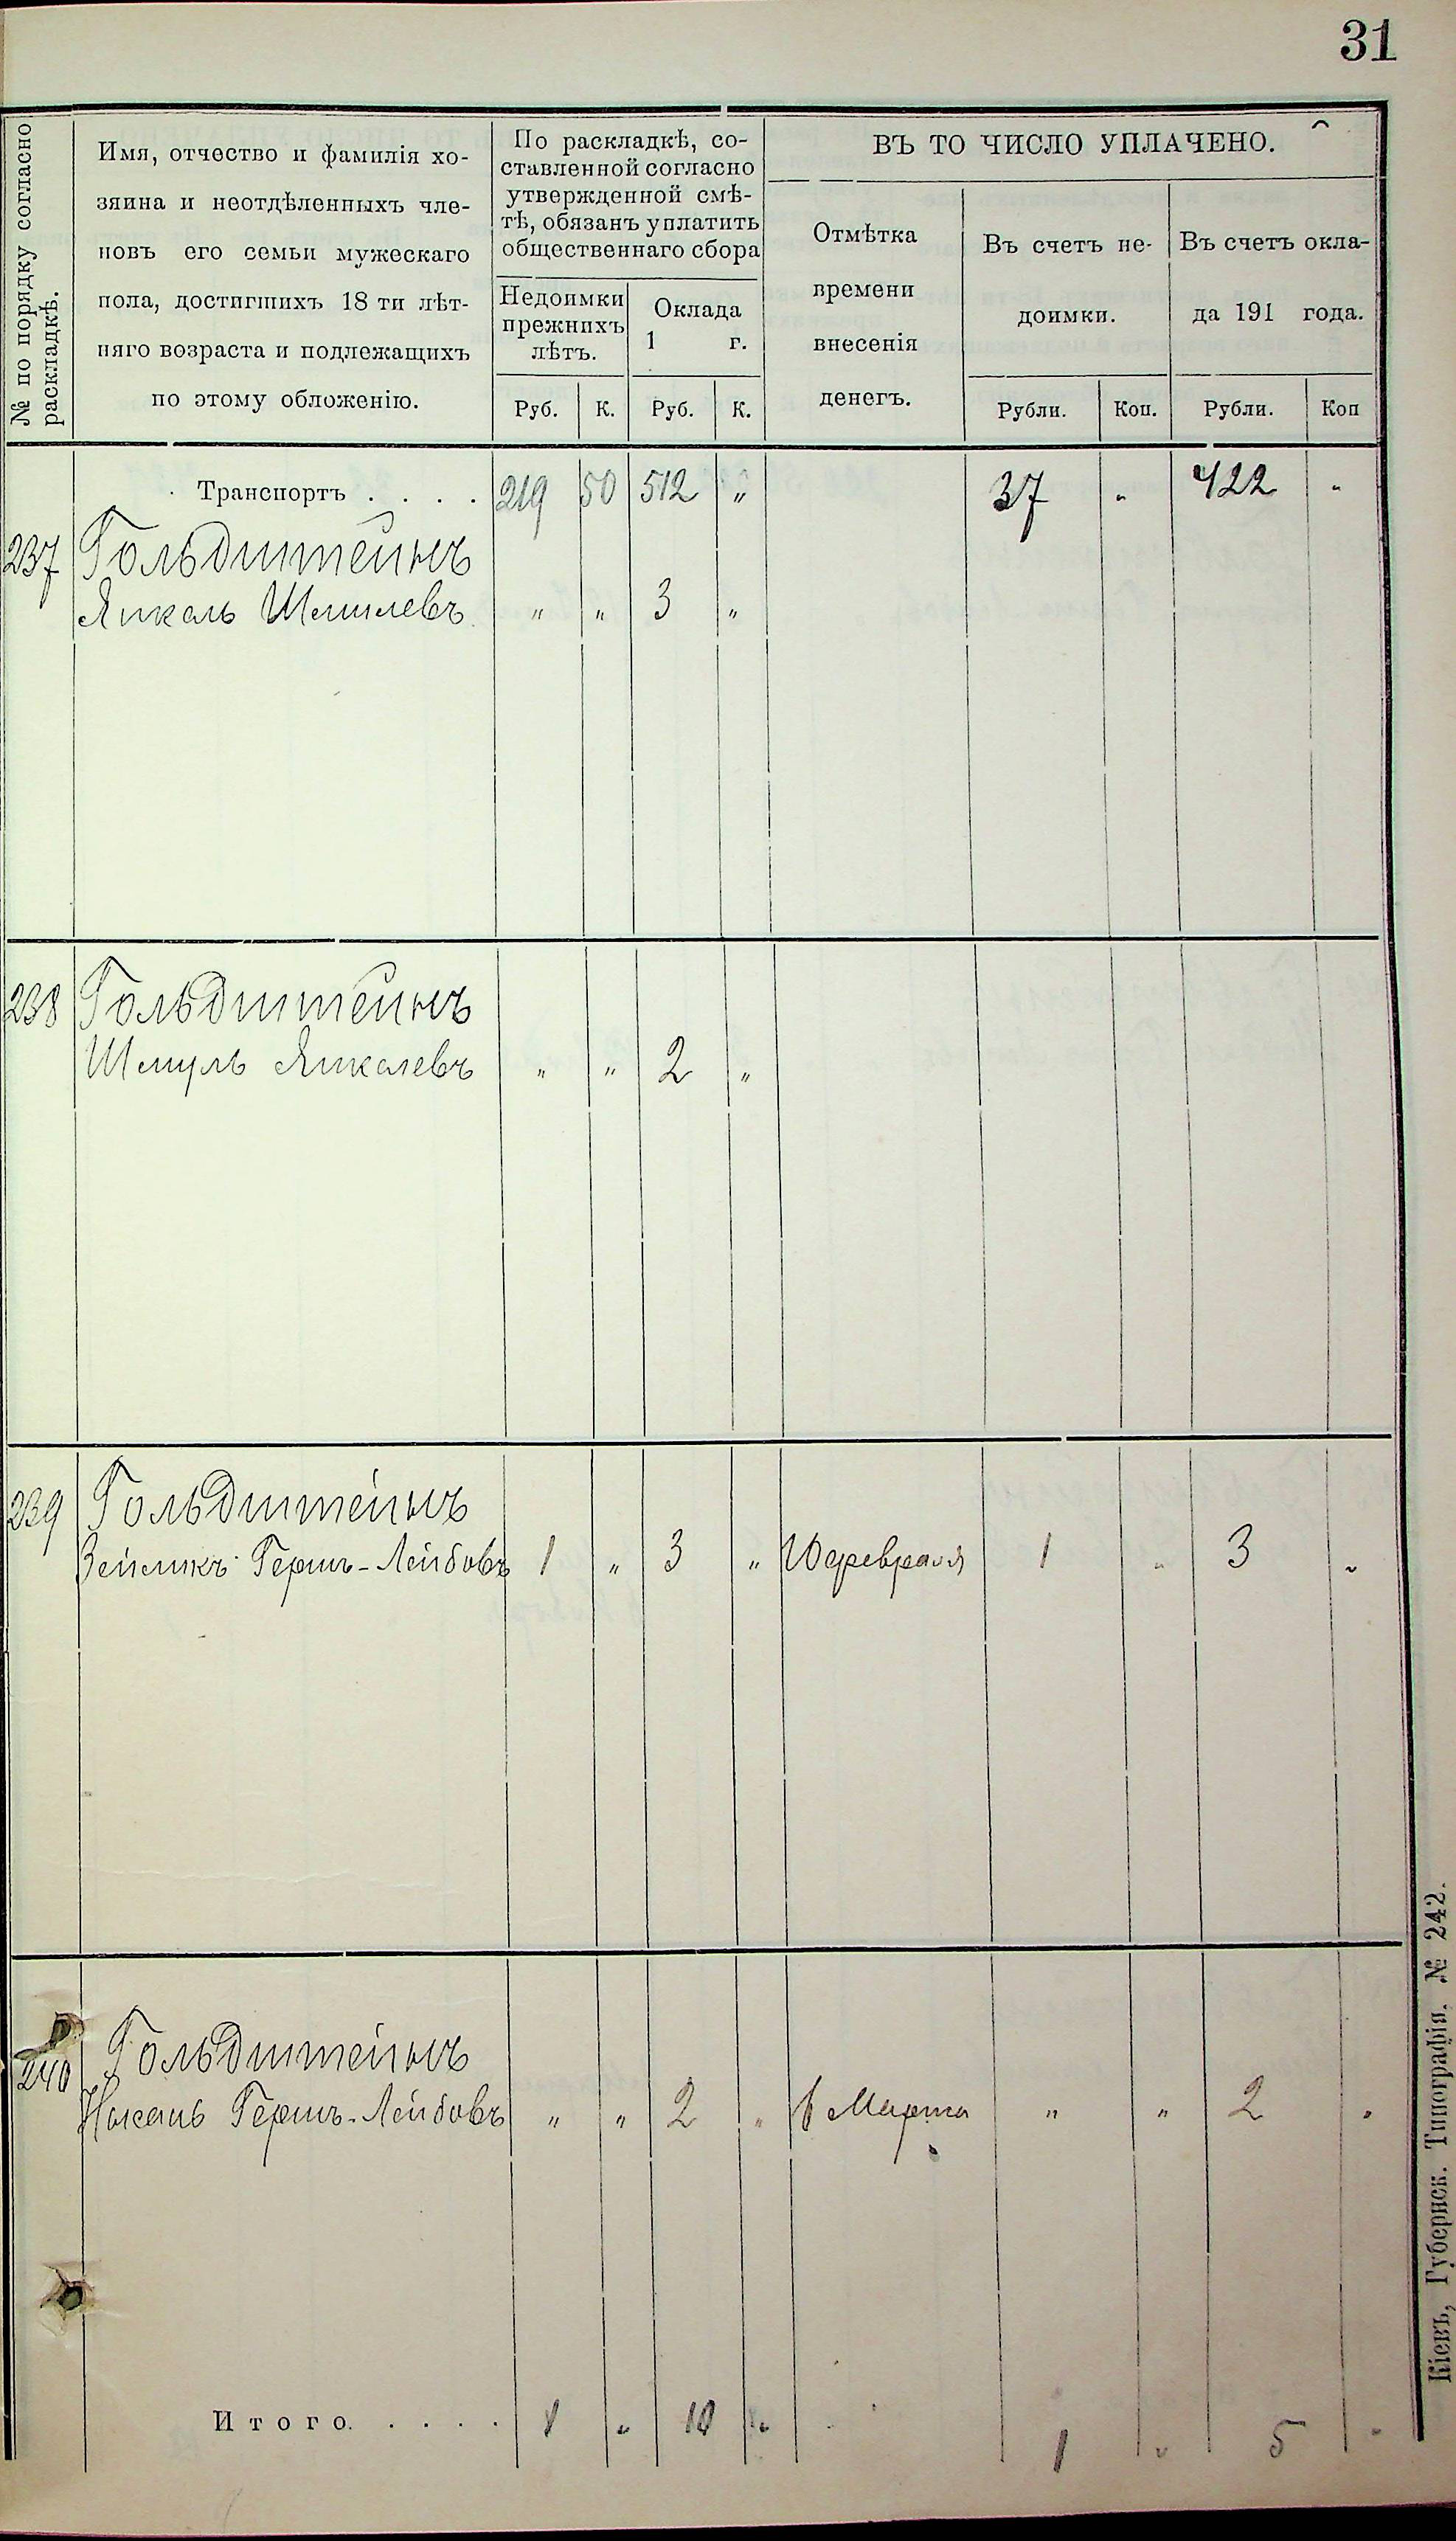 31
№ по порядку согласно
раскладкѣ.
Имя, отчество и фамилія хо-
зяина и неотдѣленныхъ чле-
новъ его семьи мужескаго
пола, достигшихъ 18 ти лѣт-
няго возраста и подлежащихъ
по этому обложенію.
По раскладкѣ, со-
ставленной согласно
утвержденной смѣ-
тѣ, обязанъ уплатить
общественнаго сбора
Недоимки
прежнихъ
лѣтъ.
Оклада
1 г.
Руб. К. Руб. К.
ВЪ ТО ЧИСЛО УПЛАЧЕНО.
Отмѣтка
времени
внесенія
денегъ.
Въ счетъ не-
доимки.
Рубли. Коп.
Въ счетъ окла-
да 191 года.
Рубли. Коп
Транспортъ . . . . 219 50 512 „ 37 „ 422 „
237 Гольдштейнъ
Янкель Шмилевъ „ „ 3 „
238 Гольдштейнъ
Шмуль Янкелевъ „ „ 2 „
239 Гольдштейнъ
Зейликъ Гершъ-Лейбовъ 1 „ 3 „ февраля 1 „ 3 „
240 Гольдштейнъ
Гершъ-Лейбовъ „ „ 2 „ 6 Марта „ „ 2 „
Итого. . . . . 1 „ 10 „ 1 „ 5 „
Кіевъ, Губернск. Типографія. № 242.